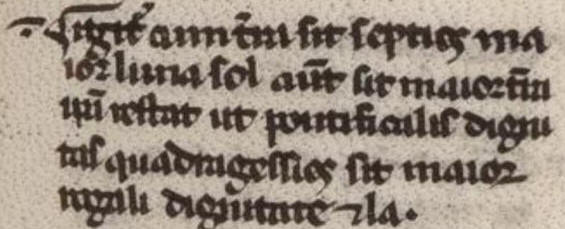 Igit᷑ cum t̄ra sit septieſ ma
ior luna sol aūt sit maior t̄ra
restat ut pontificalis digni
tas quadragessies sit maior
regali dignitate ⁊ la.